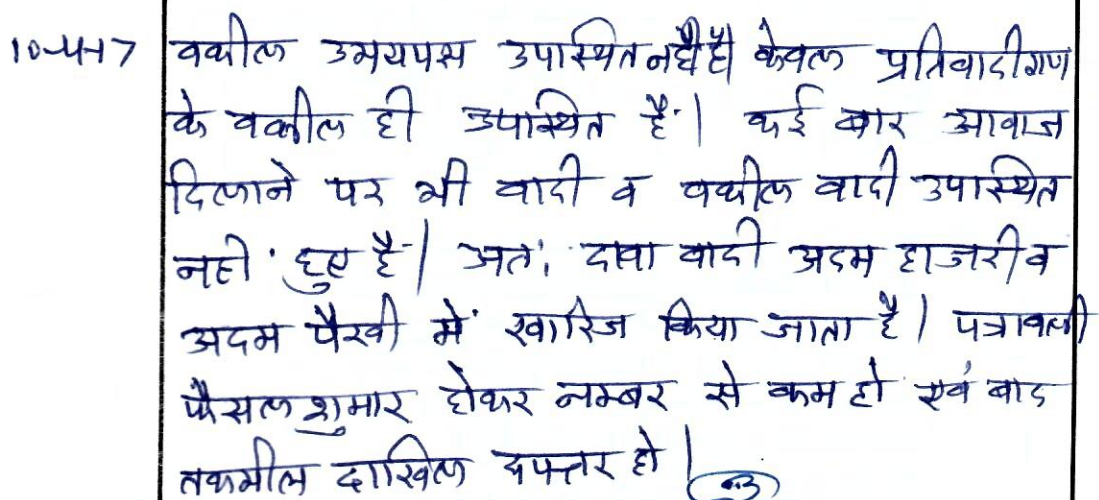 10-4-17 वकील उभयपक्ष उपस्थित नही है। केवल प्रतिवादीगण
के वकील ही उपस्थित है। कई बार आवाज
दिलाने पर भी वादी व वकील वादी उपस्थित
नही हुए है। अतः दावा वादी अदम हाजरी व
अदम पैरवी में खारिज किया जाता है। पत्रावली
फैसल शुमार होकर नम्बर से कम हो एवं बाद
तकमील दाखिल दफ्तर हो।